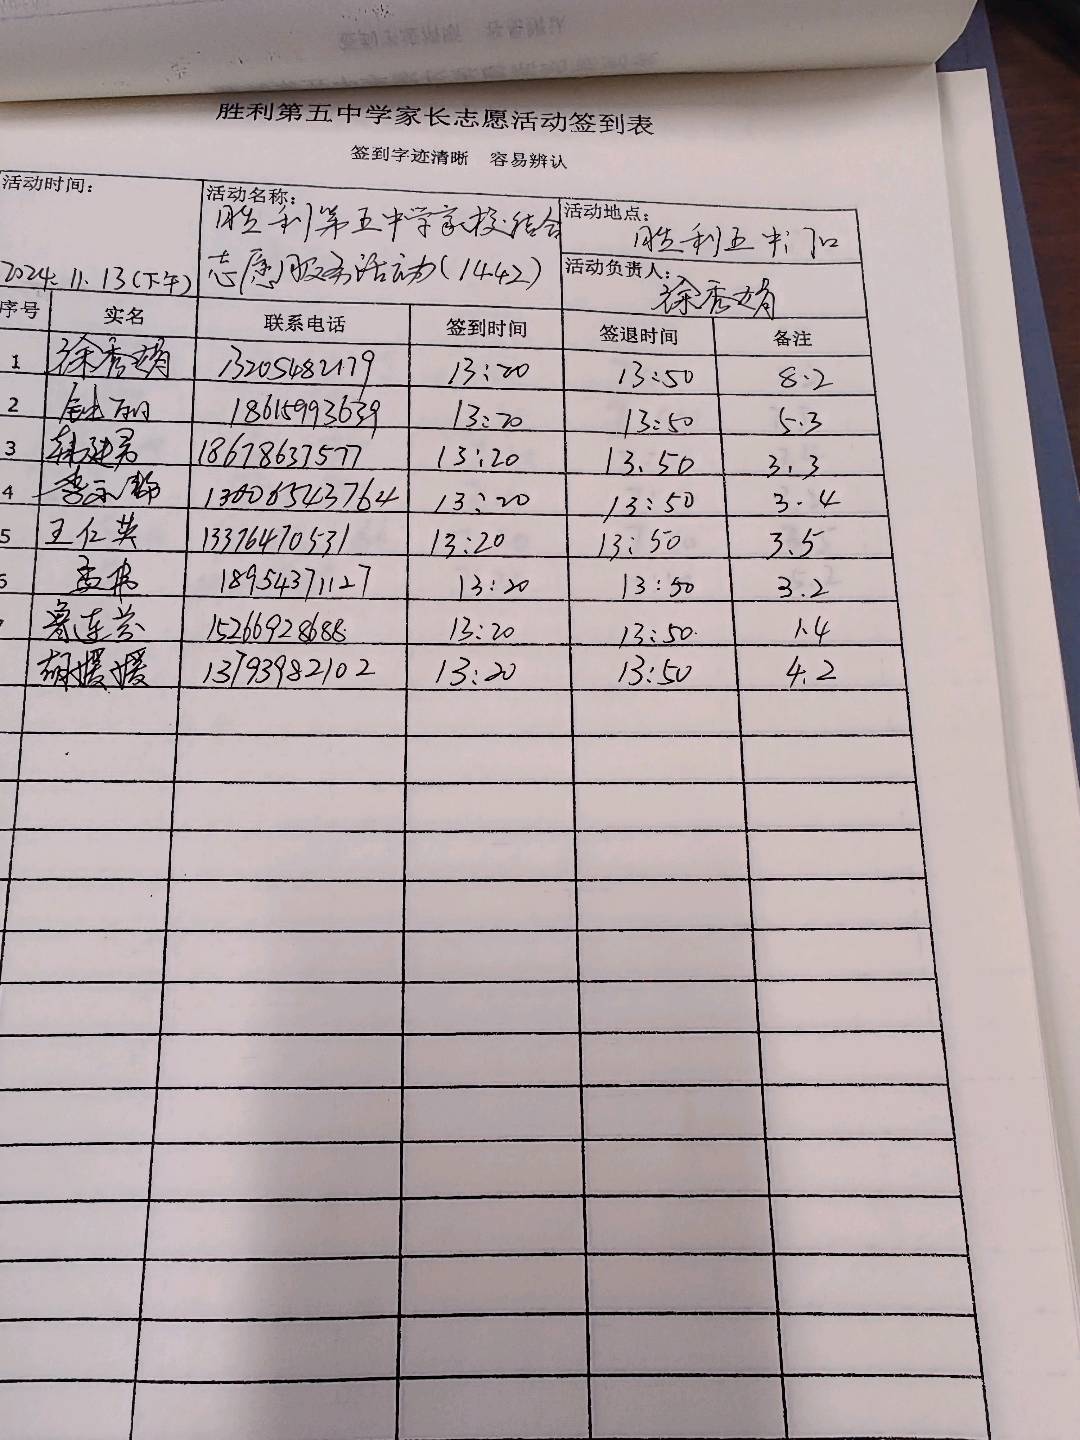 胜利第五中学家长志愿活动签到表
签到字迹清晰 容易辨认
活动时间： 2024.11.13(下午)
活动名称： 胜利第五中学家校结合
志愿服务活动(1442)
活动地点： 胜利五中门口
活动负责人： 徐秀娟
序号 实名 联系电话 签到时间 签退时间 备注
1 徐秀娟 13205482179 13:20 13:50 8.2
2 18615993639 13:20 13:50 5.3
3 韩建君 18678637577 13:20 13.50 3.3
4 13:20 13:50 3.4
5 王仁英 13376470531 13:20 13:50 3.5
6 18954371127 13:20 13:50 3.2
鲁连芬 15266928688 13:20 13:50 1.4
胡媛媛 13793982102 13:20 13:50 4.2